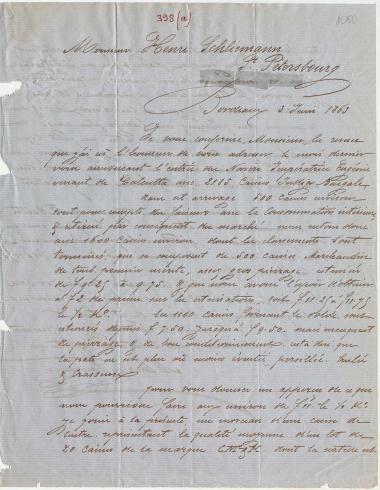 398 (a)
1050
Monsieur Henri Schliemann
St. Petersbourg
Bordeaux 3 Juin 1863
Je vous confirme, Monsieur, la remise
que j'ai eu l'honneur de vous adresser le mois dernier
vous annonçant l'entrée du Navire Impératrice Eugénie
venant de Calcutta avec 2185 Caisses Indigo Bengale.
Dans cet arrivage 500 caisses environ
sont pour compte de faiseurs avec la consommation intérieure
& retirées par conséquent du marché. nous restons donc
avec 1600 caisses environ dont les classements sont
terminés, qui se composent de 500 caisses Marchandise
de tout premier mérite, assez gros pierrage, estimés
de f 9.25 à 9.75. & que nous avons l'espoir d'obtenir
à f 2 de prime sur les estimations, soit f 11.25 à 11.75
le ½ Ko.
Les 1100 caisses formant le solde sont
estimées depuis f 7.50 jusqu'à f 9.50. mais manquent
de pierrage & de bon conditionnement. cela dit que
la pâte en est plus ou moins éventée, persillée, brulée
& crasseuse.
pour vous donner un apperçu de ce que
nous pourrions faire aux environs de f 11. le ½ Ko
je joins à la présente, un morceau d'une caisse de
centre représentant la qualité moyenne d'un lot de
20 caisses de la marque dont la matière est